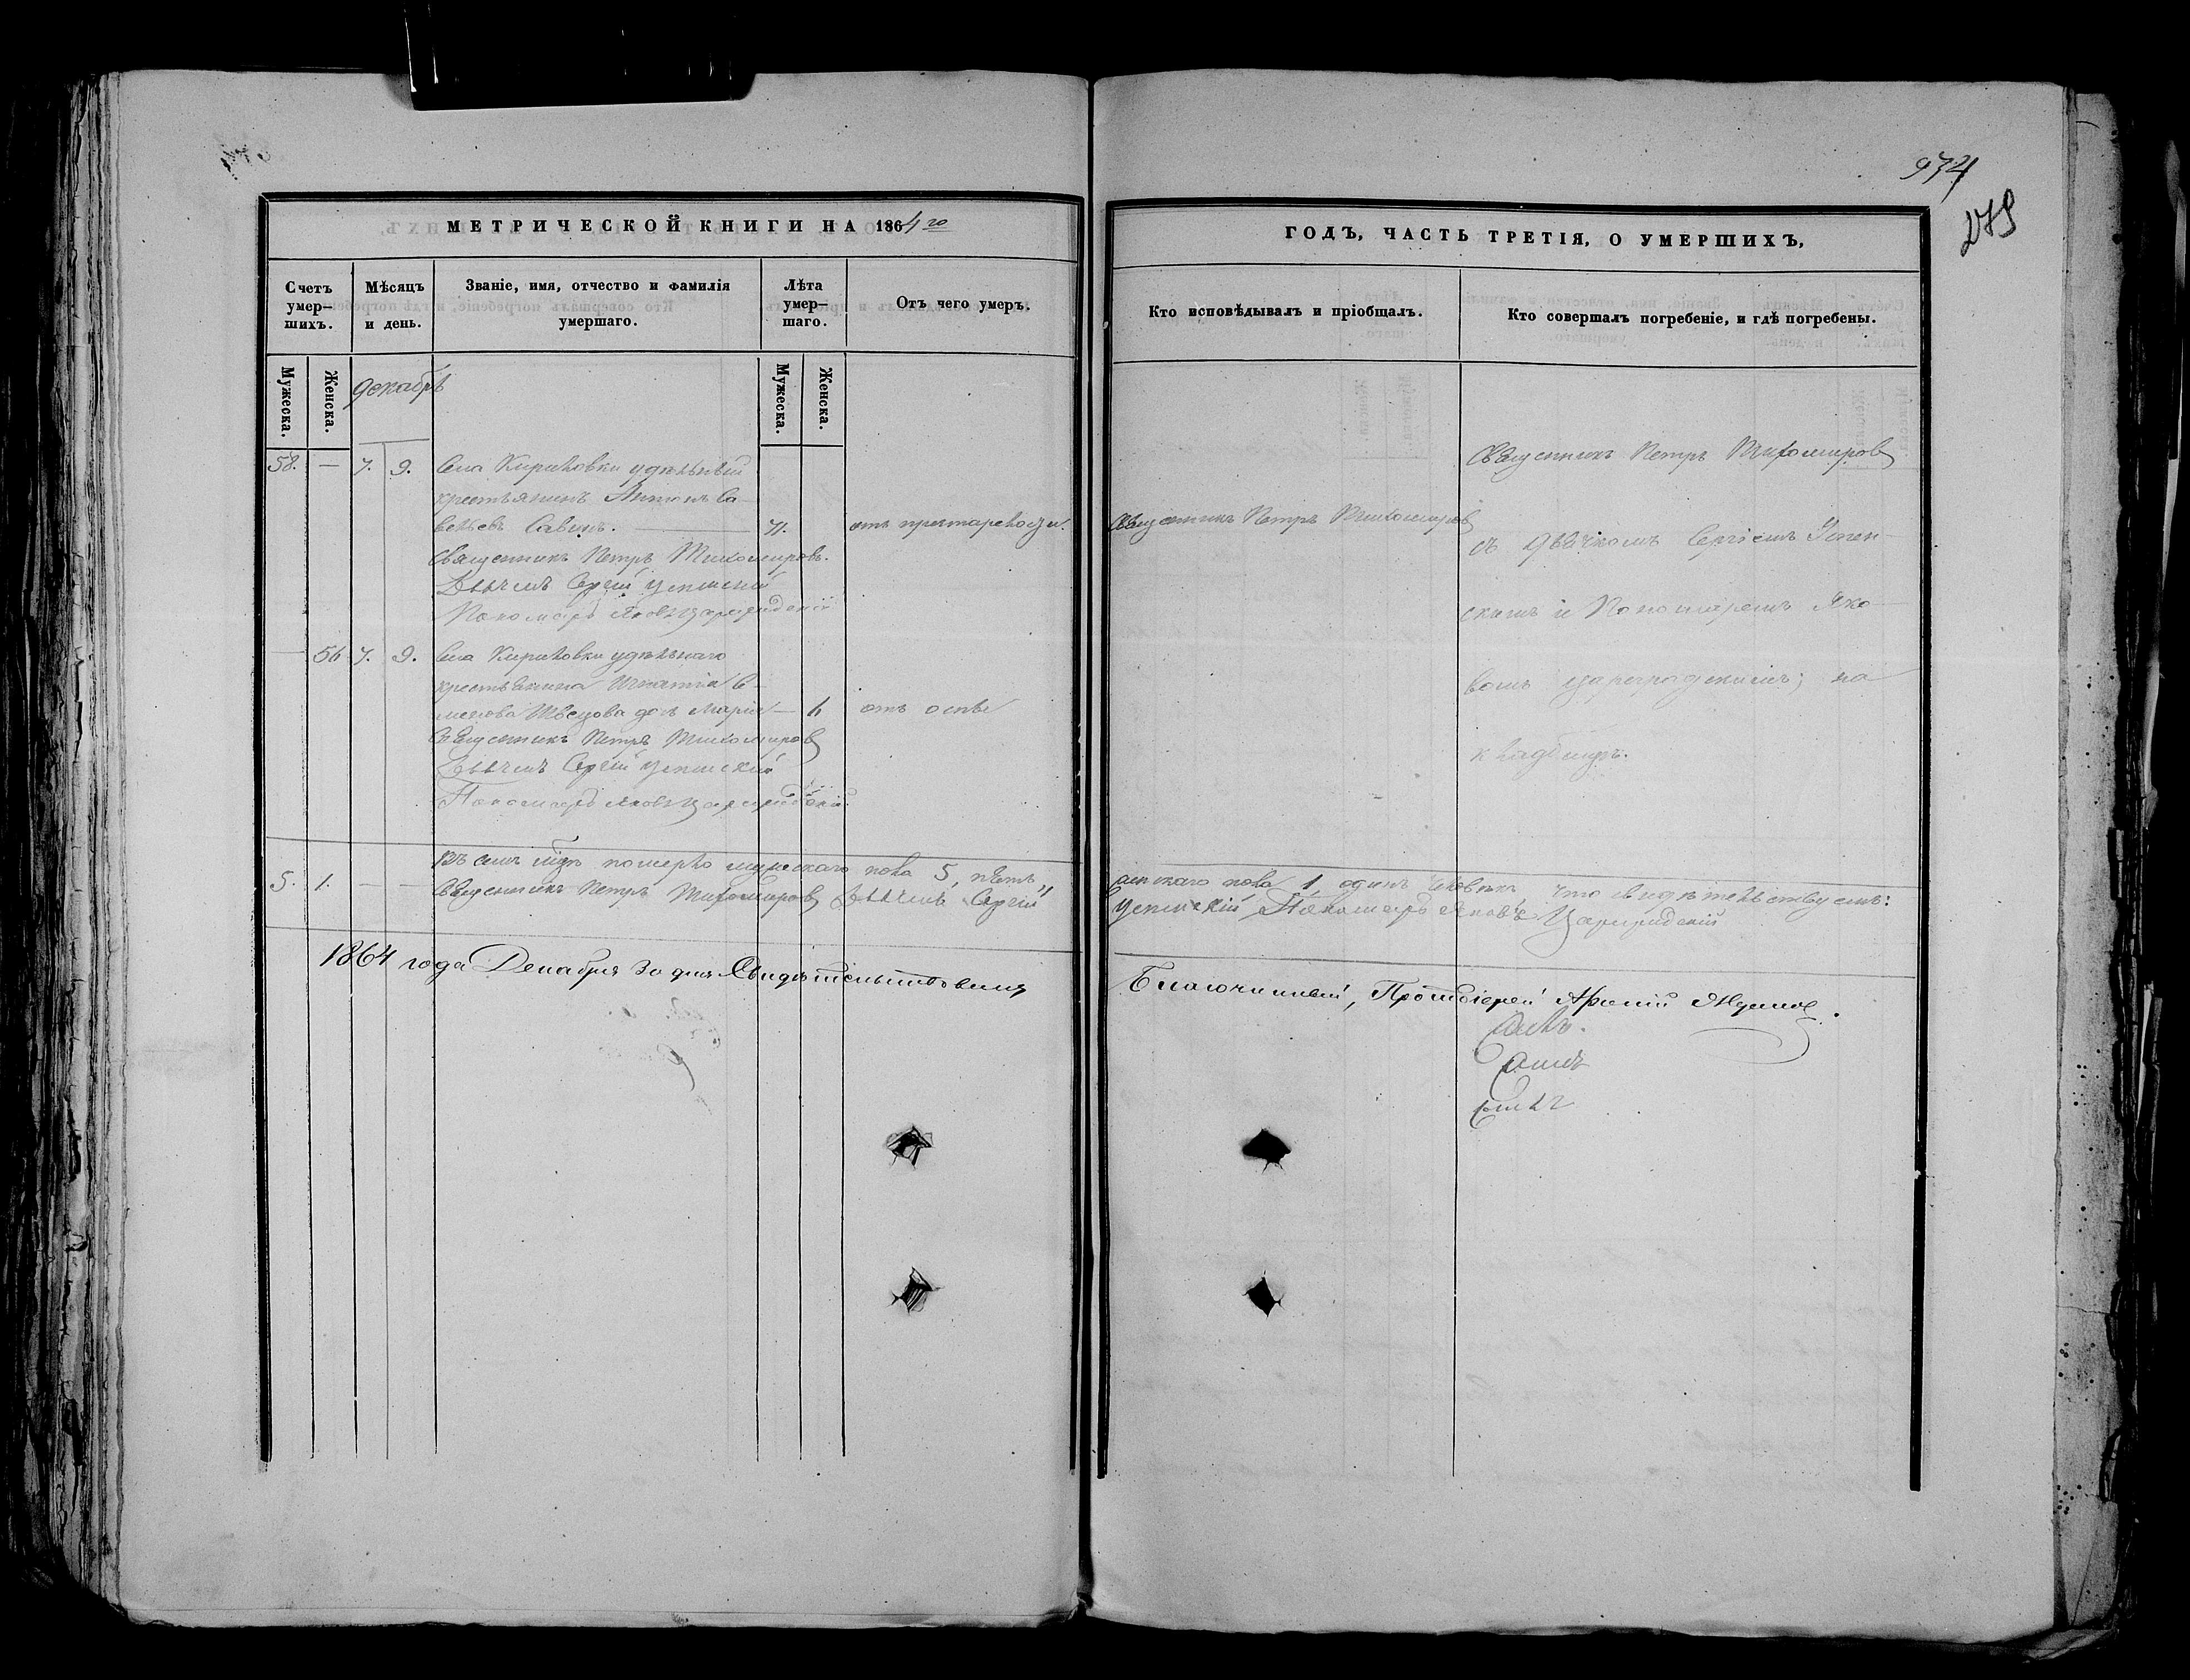 974
279
МЕТРИЧЕСКОЙ КНИГИ НА 1864го
ГОДЪ, ЧАСТЬ ТРЕТІЯ, О УМЕРШИХЪ,
Счетъ умер-шихъ.
Мѣсяцъ и день.
Званіе, имя, отчество и фамилія умершаго.
Лѣта умер-шаго.
Отъ чего умеръ.
Кто исповѣдывалъ и пріобщалъ.
Кто совершалъ погребеніе, и гдѣ погребены.
Мужеска.
Женска.
Мужеска.
Женска.
декабрь
58. — 7. 9. Села Кириловки удѣльный
крестьянинъ Антонъ Са-
вельевъ Савинъ. — 71. отъ престарелости.
Священникъ Петръ Тихомировъ.
Дьячекъ Сергій Успенскій
Пономарь Яковъ Цареградскій
— 56 7. 9. Села Кириловки удѣльнаго
крестьянина Игнатія Се-
менова Швецова дочь Марія — отъ оспы
Священникъ Петръ Тихомировъ
Дьячекъ Сергій Успенскій
Пономарь Яковъ Цареградскій
Священникъ Петръ Тихомировъ
Священникъ Петръ Тихомировъ
съ Дьячкомъ Сергіемъ Успен-
скимъ и Пономаремъ Яко-
вомъ Цареградскимъ; на
кладбищѣ.
5. 1. — — Въ семъ м͠цѣ померло мужескаго пола 5, пять,
женскаго пола 1, одинъ человѣкъ что свидѣтельствуемъ:
Священникъ Петръ Тихомировъ Дьячекъ Сергій
Успенскій, Пономарь Яковъ Цареградскій
1864 года Декабря 30 дня Свидѣтельствовалъ
Благочинный, Протоіерей